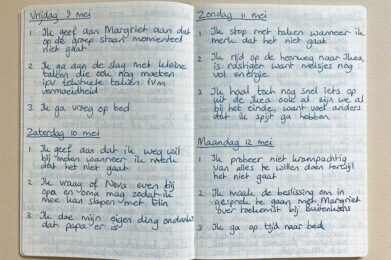 Vrijdag 9 mei
1 Ik geef aan Margriet aan dat
op de groep staan momenteel
niet gaat
2 Ik ga aan de slag met kleine
taken die ook nog moeten
ipv
vermoeidheid
3 Ik ga vroeg op bed
Zaterdag 10 mei
1 Ik geef aan dat ik weg wil
bij molen wanneer ik merk
dat het niet gaat
2 Ik vraag of Nova even bij
opa en oma mag zodat ik
mee kan slapen met Elin
3 Ik doe mijn eigen ding ondanks
dat papa er is
Zondag 11 mei
1 Ik stop met taken wanneer ik
merk dat het niet gaat
2 Ik rijd op de heenweg naar Ikea,
is rustiger want meisjes nog
vol energie
3 Ik haal toch nog snel iets op
uit de Ikea ook al zijn we al
bij het einde, want voel anders
dat ik spijt ga hebben
Maandag 12 mei
1 Ik probeer niet krampachtig
van alles te willen doen terwijl
het niet gaat
2 Ik maak de beslissing om in
gesprek te gaan met Margriet
over toekomst bij
3 Ik ga op tijd naar bed